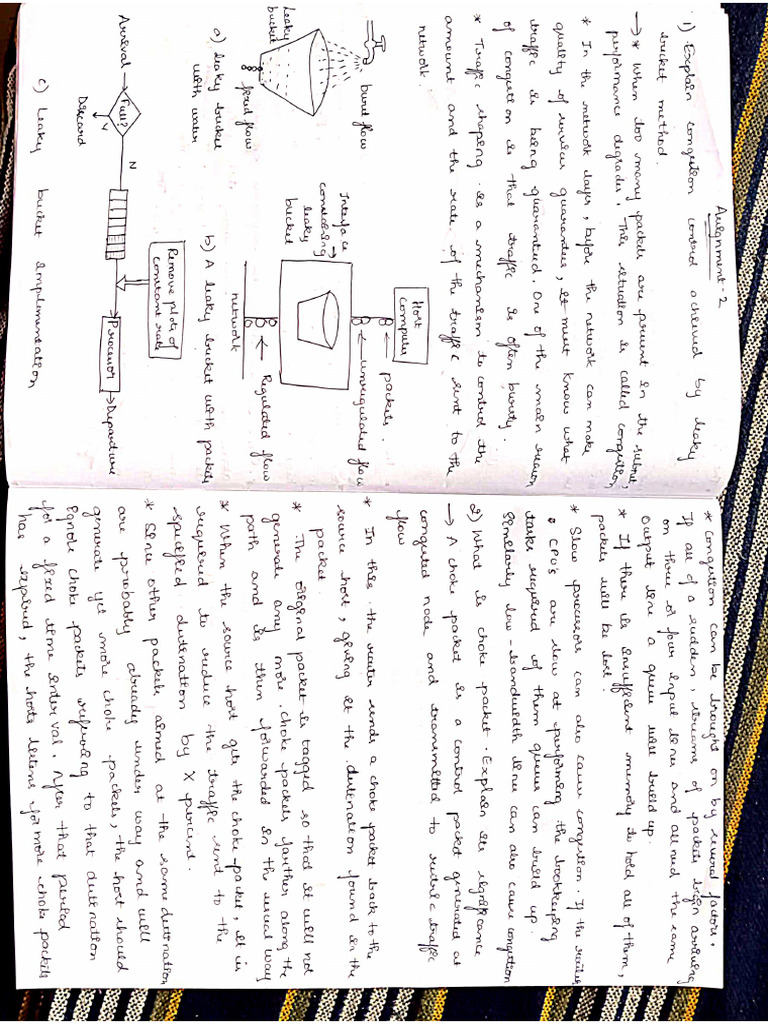 Assignment-2
1) Explain congestion control achieved by leaky
bucket method.
→ * When too many packets are present in the subnet,
performance degrades. This situation is called congestion
* In the network layer, before the network can make
quality of services guarantees, it must know what
traffic is being guaranteed. One of the main reason
of congestion is that traffic is often bursty.
* Traffic shaping is a mechanism to control the
amount and the rate of the traffic sent to the
network.
burst flow
Leaky
bucket
fixed flow
a) leaky bucket
with water
Host
Computer
← packets.
← unregulated flow
Interface
containing →
leaky
bucket
← Regulated flow
network
b) A leaky bucket with packets
Arrival → Full?
Y
Discard
N
Remove pkts of
constant rate
Processor → Departure
c) Leaky bucket implementation
* Congestion can be brought on by several factors.
If all of a sudden, streams of packets begin arriving
on three or four input lines and all need the same
output line a queue will build up.
* If there is insufficient memory to hold all of them,
packets will be lost.
* Slow processors can also cause congestion. If the router
CPU's are slow at performing the bookkeeping
tasks required of them queues can build up.
Similarly low-bandwidth line can also cause congestion
2) What is choke packet. Explain its significance
→ A choke packet is a control packet generated at
congested node and transmitted to restrict traffic
flow
* In this the router sends a choke packet back to the
source host, giving it the destination found in the
packet.
* The original packet is tagged so that it will not
generate any more choke packets farther along the
path and is then forwarded in the usual way
* When the source host gets the choke-packet, it is
required to reduce the traffic sent to the
specified destination by X percent.
* Since other packets aimed at the same destination
are probably already under way and will
generate yet more choke packets, the host should
ignore choke packets referring to that destination
for a fixed time interval. After that period
has expired, the hosts listens for more choke packets